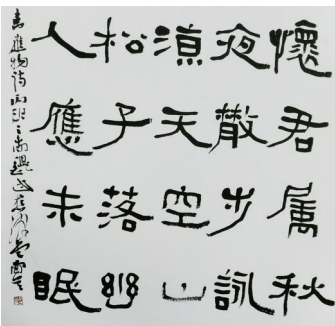 懷君属秋
夜散步詠
涼天空山
松子落幽
人應未眠
韋應物詩